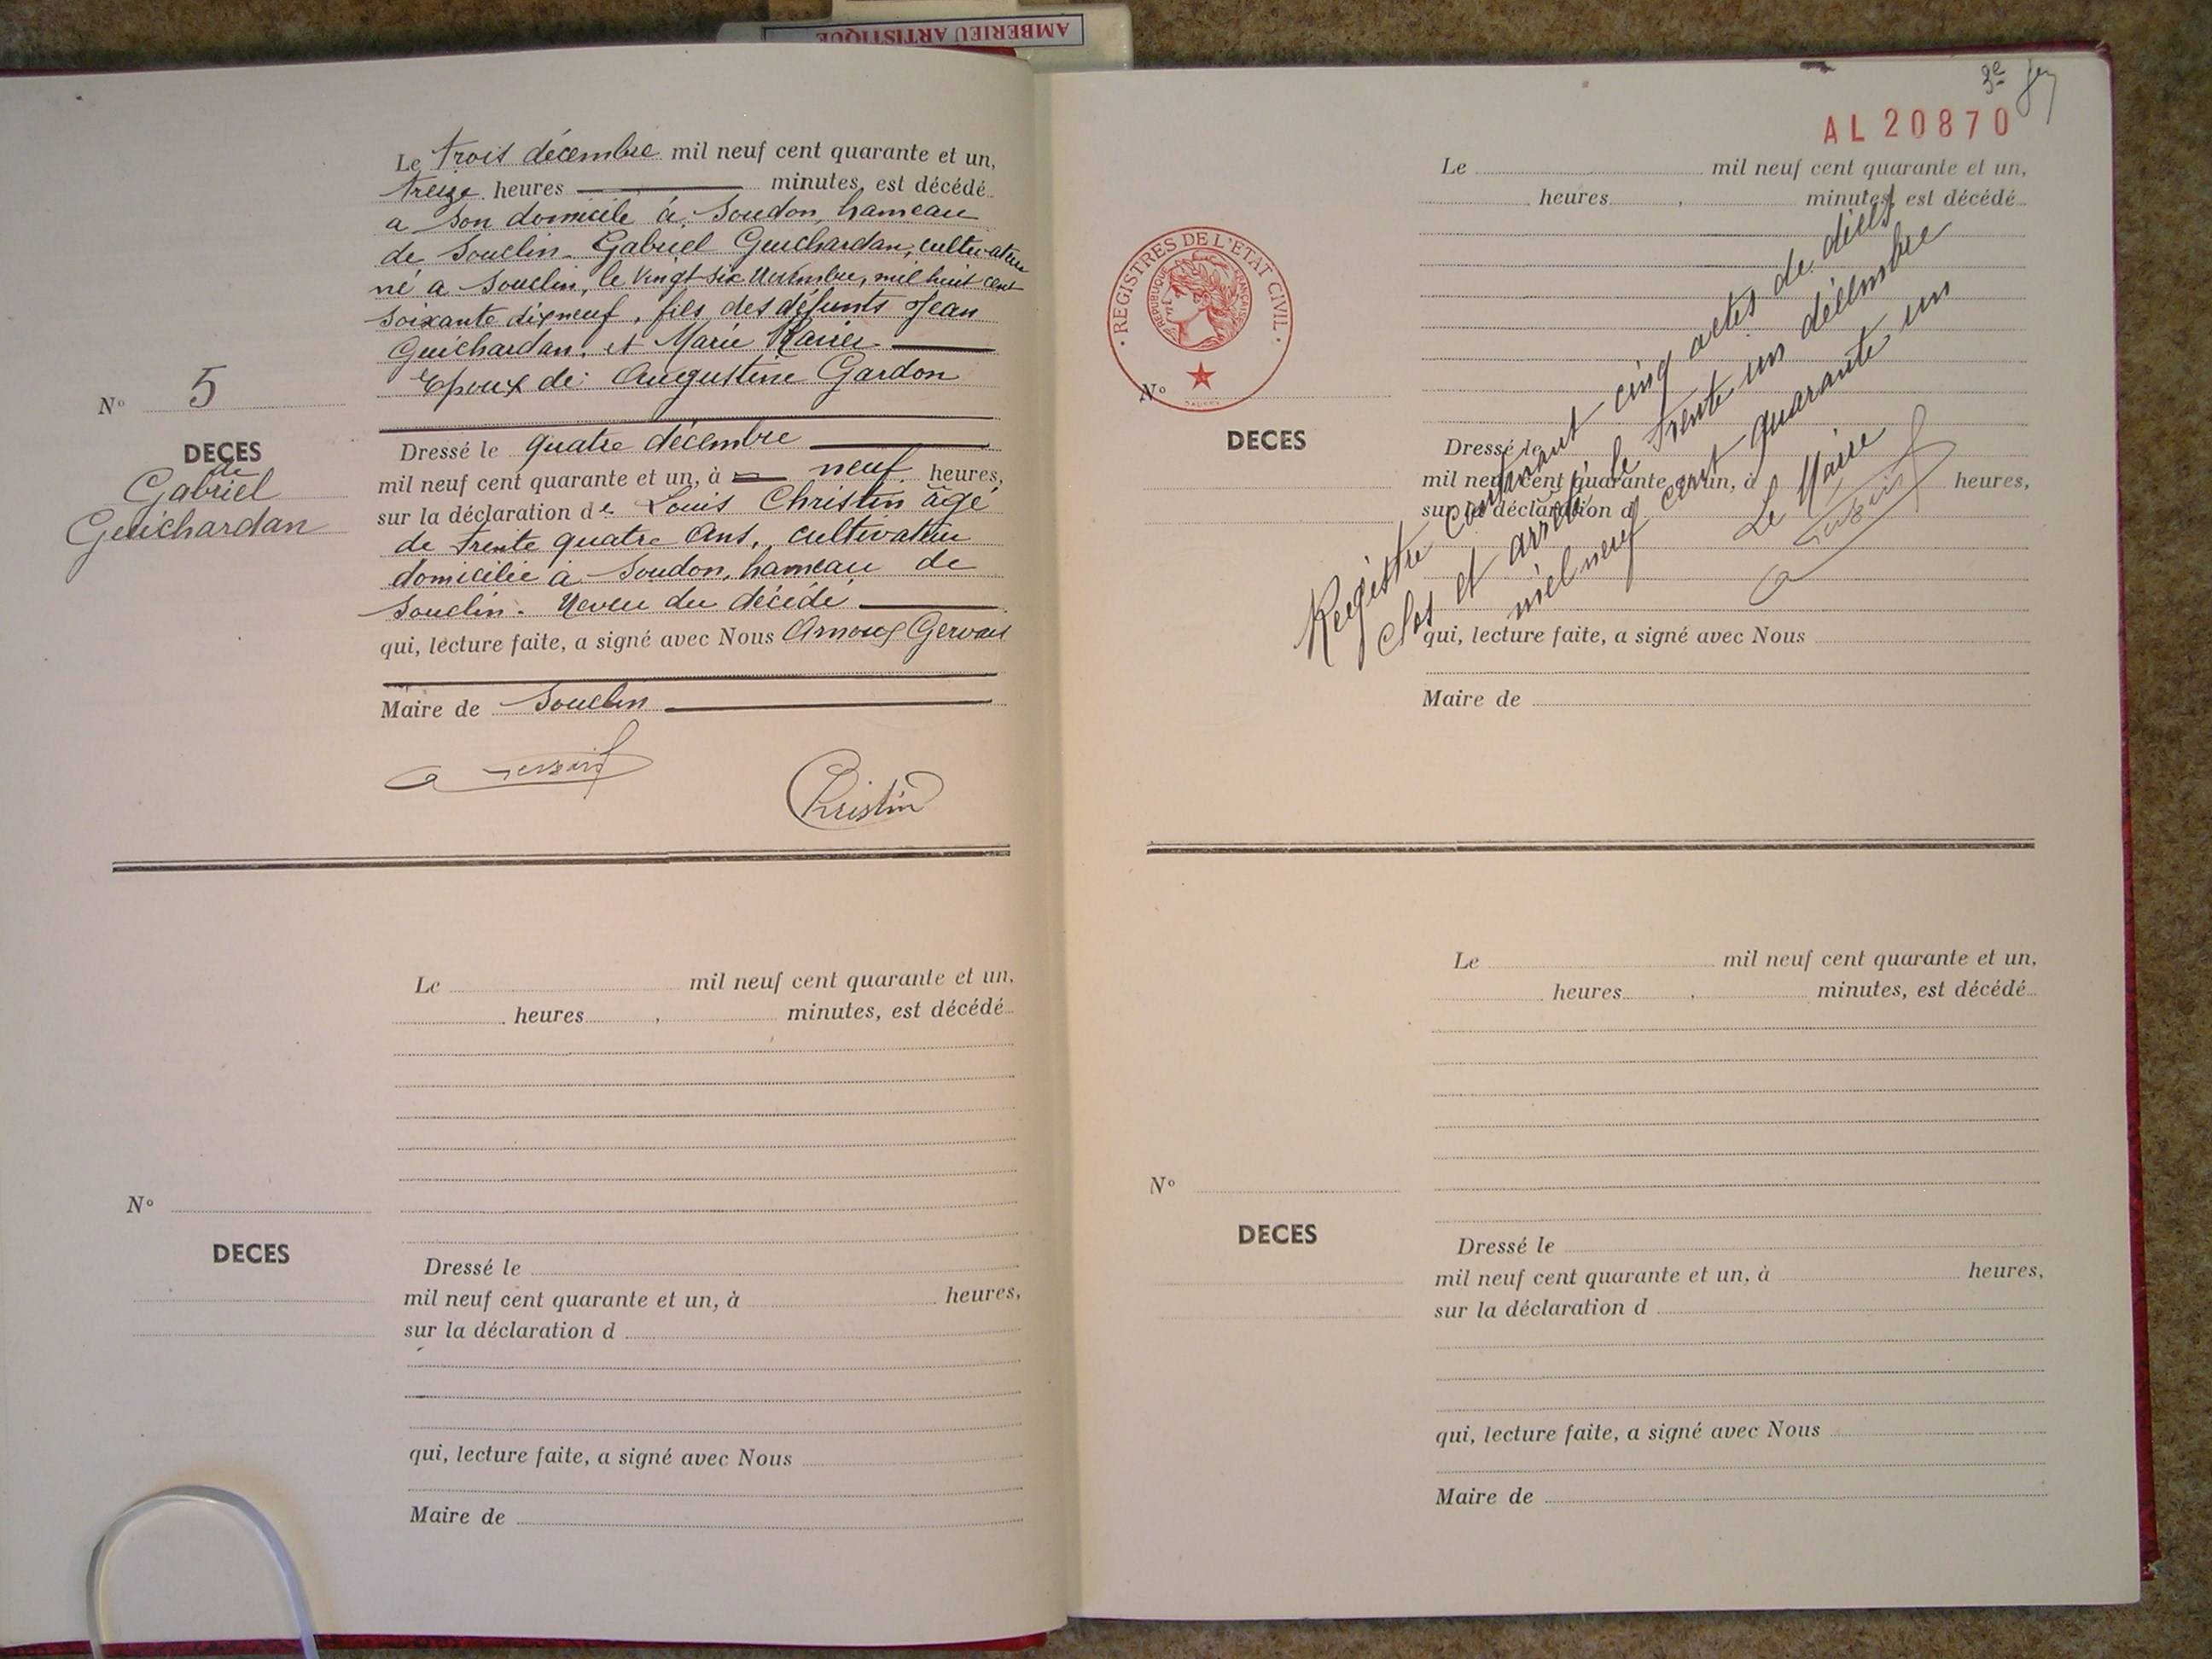 AMBERIEU ARTISTIQUE
Le trois décembre mil neuf cent quarante et un,
treize heures minutes, est décédé
a son domicile à Soudon, hameau
de Souclin. Gabriel Guichardan, cultivateur
né a Souclin, le vingt six novembre, mil huit cent
soixante dix neuf, fils des défunts Jean
Guichardan, et Marie
Epoux de: Augustine Gardon
N° 5
DECES
de
Gabriel
Guichardan
Dressé le quatre décembre
mil neuf cent quarante et un, à neuf heures,
sur la déclaration de Louis Christin âgé
de trente quatre ans, cultivateur
domicilié à Soudon, hameau de
Souclin. Neveu du décédé
qui, lecture faite, a signé avec Nous Arnoux Gervais
Maire de Souclin
Christin
Le mil neuf cent quarante et un,
heures , minutes, est décédé
N°
DECES
Dressé le
mil neuf cent quarante et un, à heures,
sur la déclaration d
qui, lecture faite, a signé avec Nous
Maire de
3e
AL 20870
Le mil neuf cent quarante et un,
heures , minutes, est décédé
· REGISTRES DE L'ETAT CIVIL ·
REPUBLIQUE FRANÇAISE
N°
DECES
Dressé le
mil neuf cent quarante et un, à heures,
sur la déclaration d
qui, lecture faite, a signé avec Nous
Maire de
Registre contenant cinq actes de décès
clos et arrêté le trente un décembre
miel neuf cent quarante un
Le Maire
Le mil neuf cent quarante et un,
heures , minutes, est décédé
N°
DECES
Dressé le
mil neuf cent quarante et un, à heures,
sur la déclaration d
qui, lecture faite, a signé avec Nous
Maire de